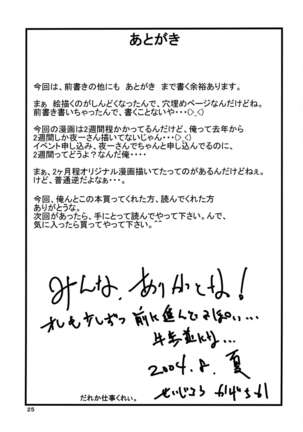 あとがき
今回は、前書きの他にも あとがき まで書く余裕あります。
まぁ 絵描くのがしんどくなったんで、穴埋めページなんだけどね。
前書き書いちゃったんで、書くことないや・・・(>_<)
今回の漫画は2週間程かかってるんだけど、俺って去年から
2週間しか夜一さん描いてないじゃん・・(>_<)
イベント申し込み、夜一さんでちゃんと申し込んでるのに、
2週間ってどうよ？なんだ俺・・・・
まぁ、2ヶ月程オリジナル漫画描いてたってのがあるんだけどねぇ。
けど、普通逆だよなぁ・・・。
今回、俺んとこの本買ってくれた方、読んでくれた方
ありがとうな。
次回があったら、手にとって読んでやって下さい。んで、
気に入ったら買ってやって下さい。^^
みんな、ありがとな!
オレも少しずつ前に進んでるぽい...
2004.8.夏
だれか仕事くれぃ。
25